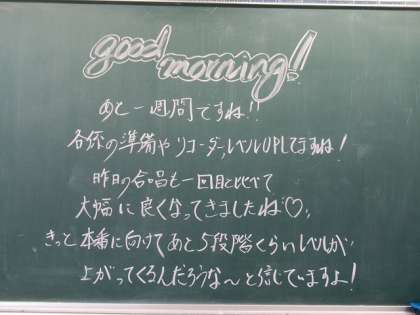 good
morning!
あと一週間ですね!!
各係の準備やリコーダー、レベルUPしてますね!
昨日の合唱も一回目と比べて
大幅に良くなってきましたね♡。
きっと本番に向けてあと5段階くらいレベルが
上がってくるんだろうな〜と信じていますよ!